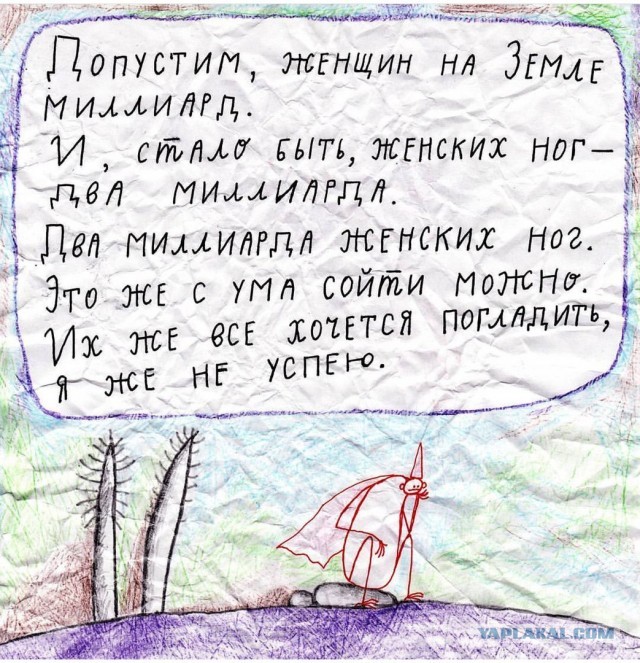 Допустим, женщин на Земле
миллиард.
И, стало быть, женских ног —
два миллиарда.
Два миллиарда женских ног.
Это же с ума сойти можно.
Их же все хочется погладить,
я же не успею.
YAPLAKAL.COM